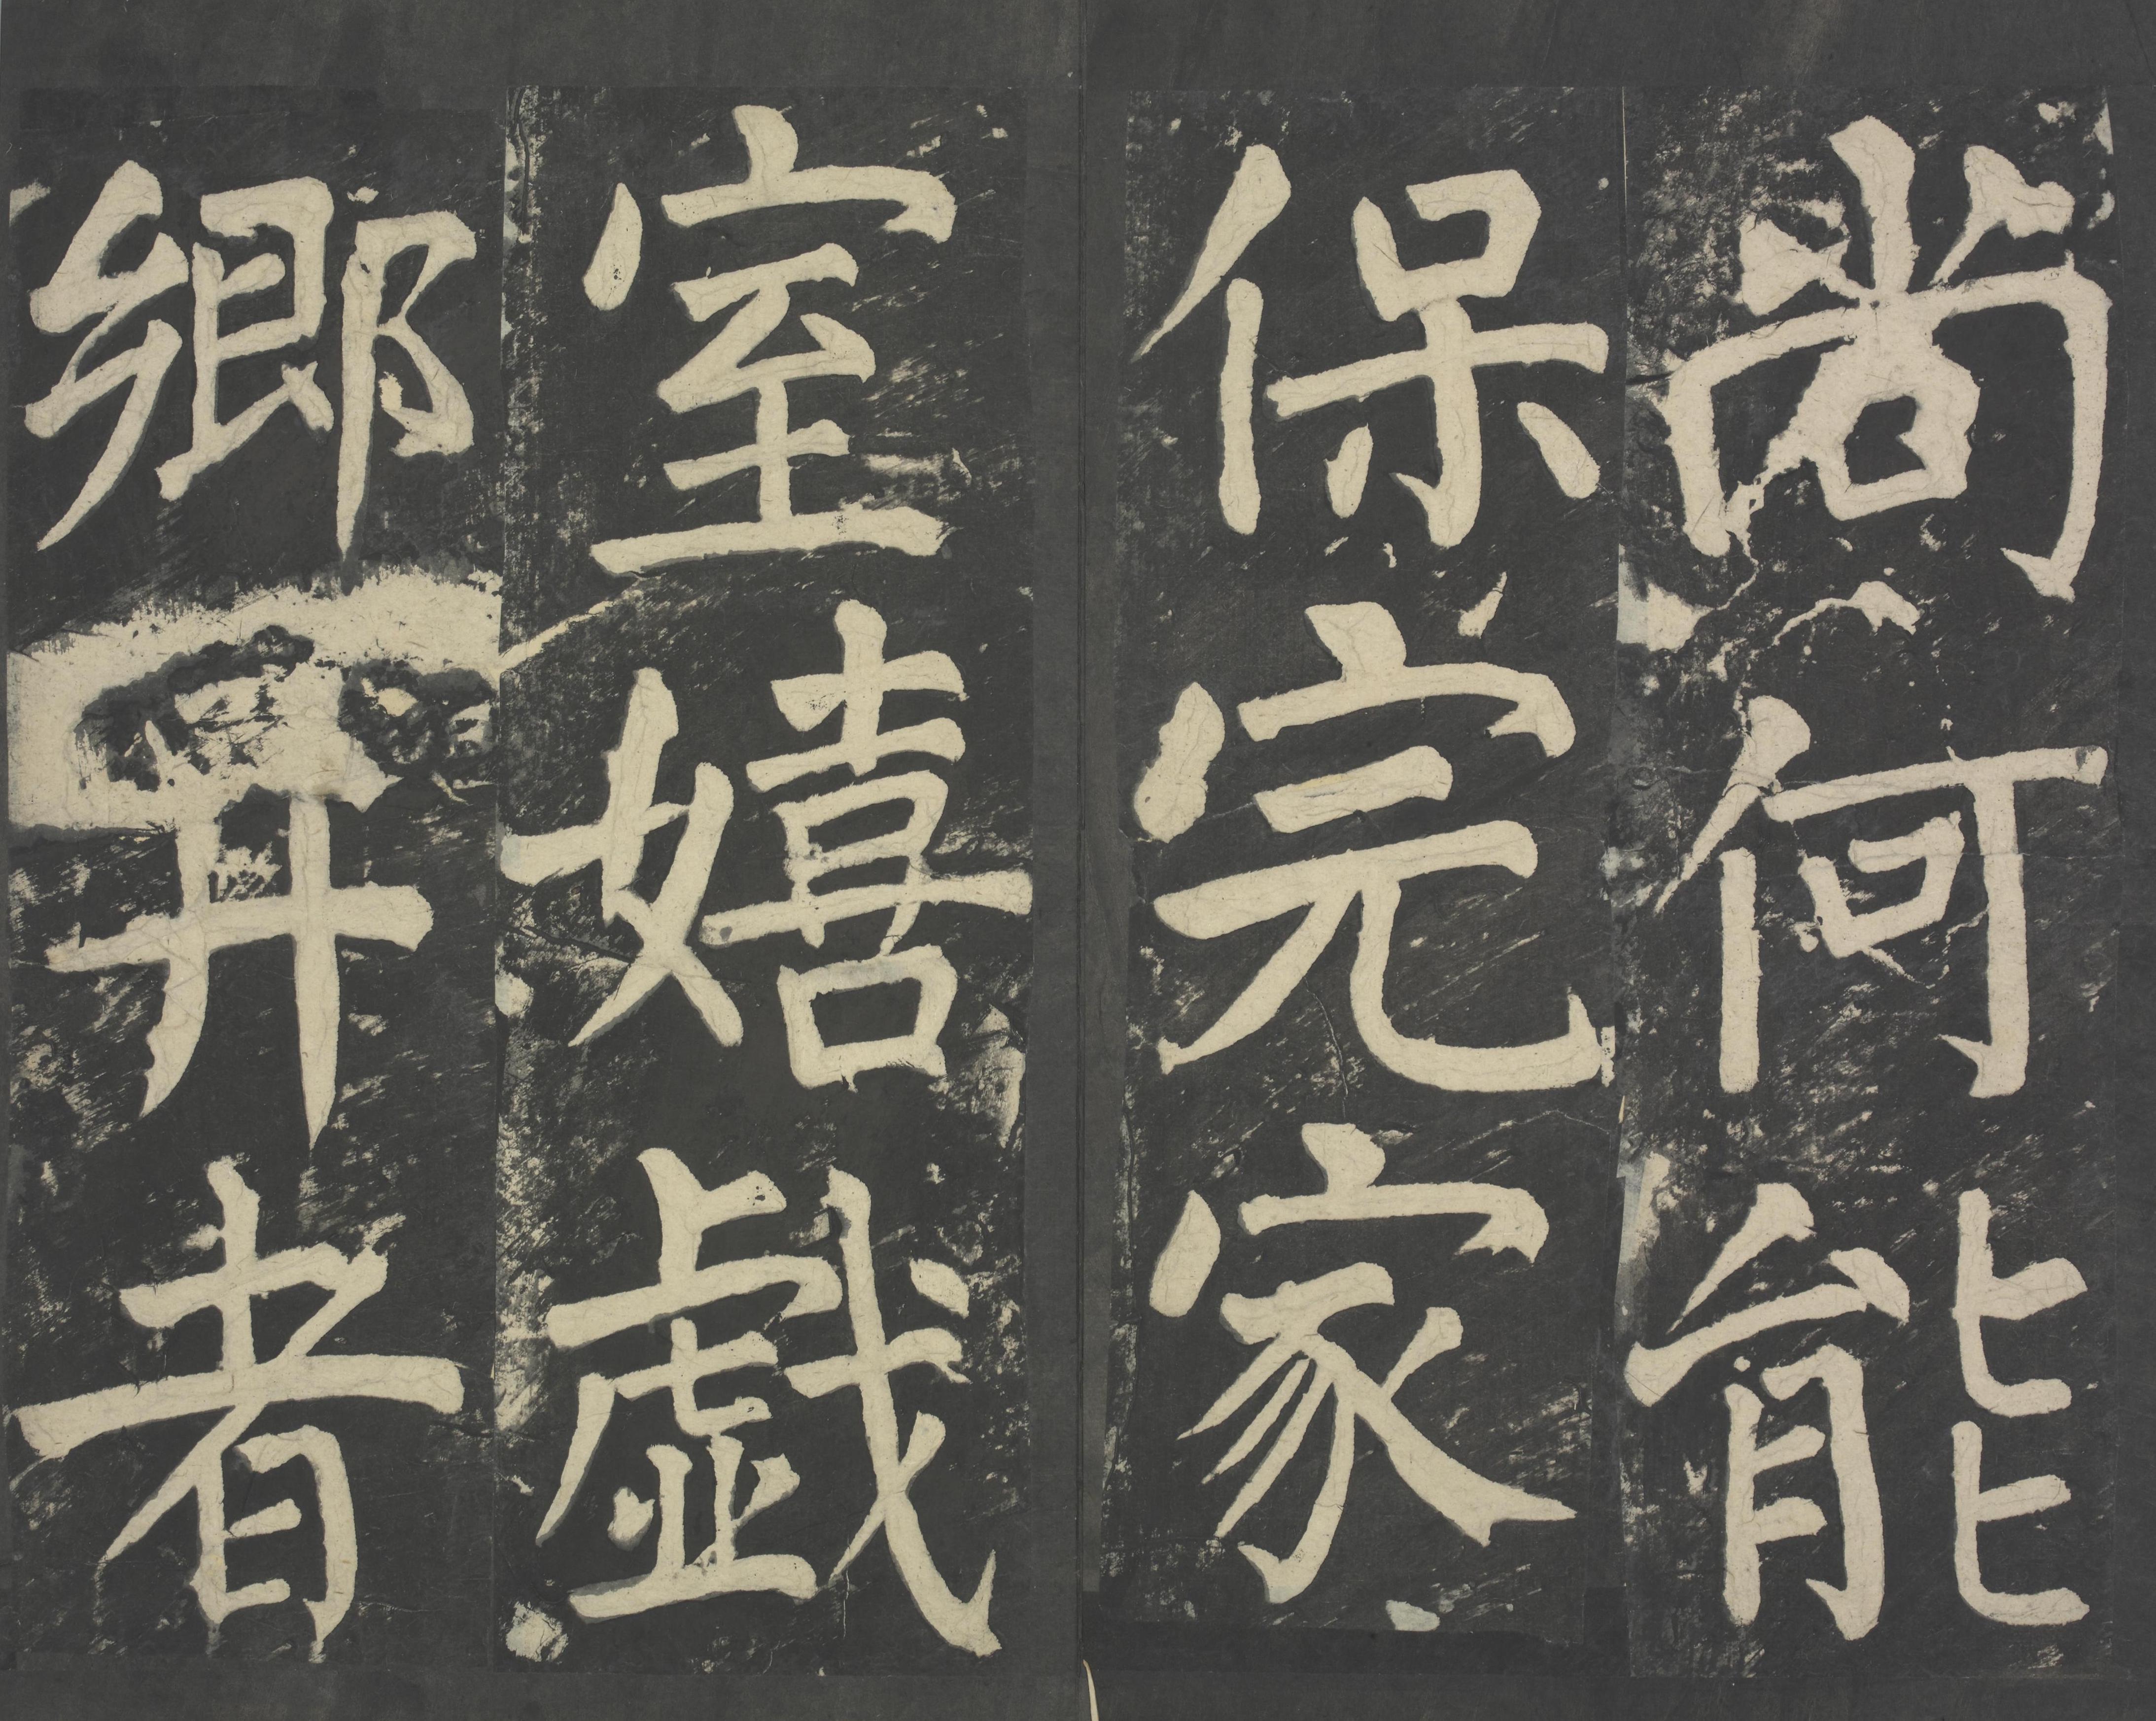 尚何能
保完家
室嬉戱
鄉井者